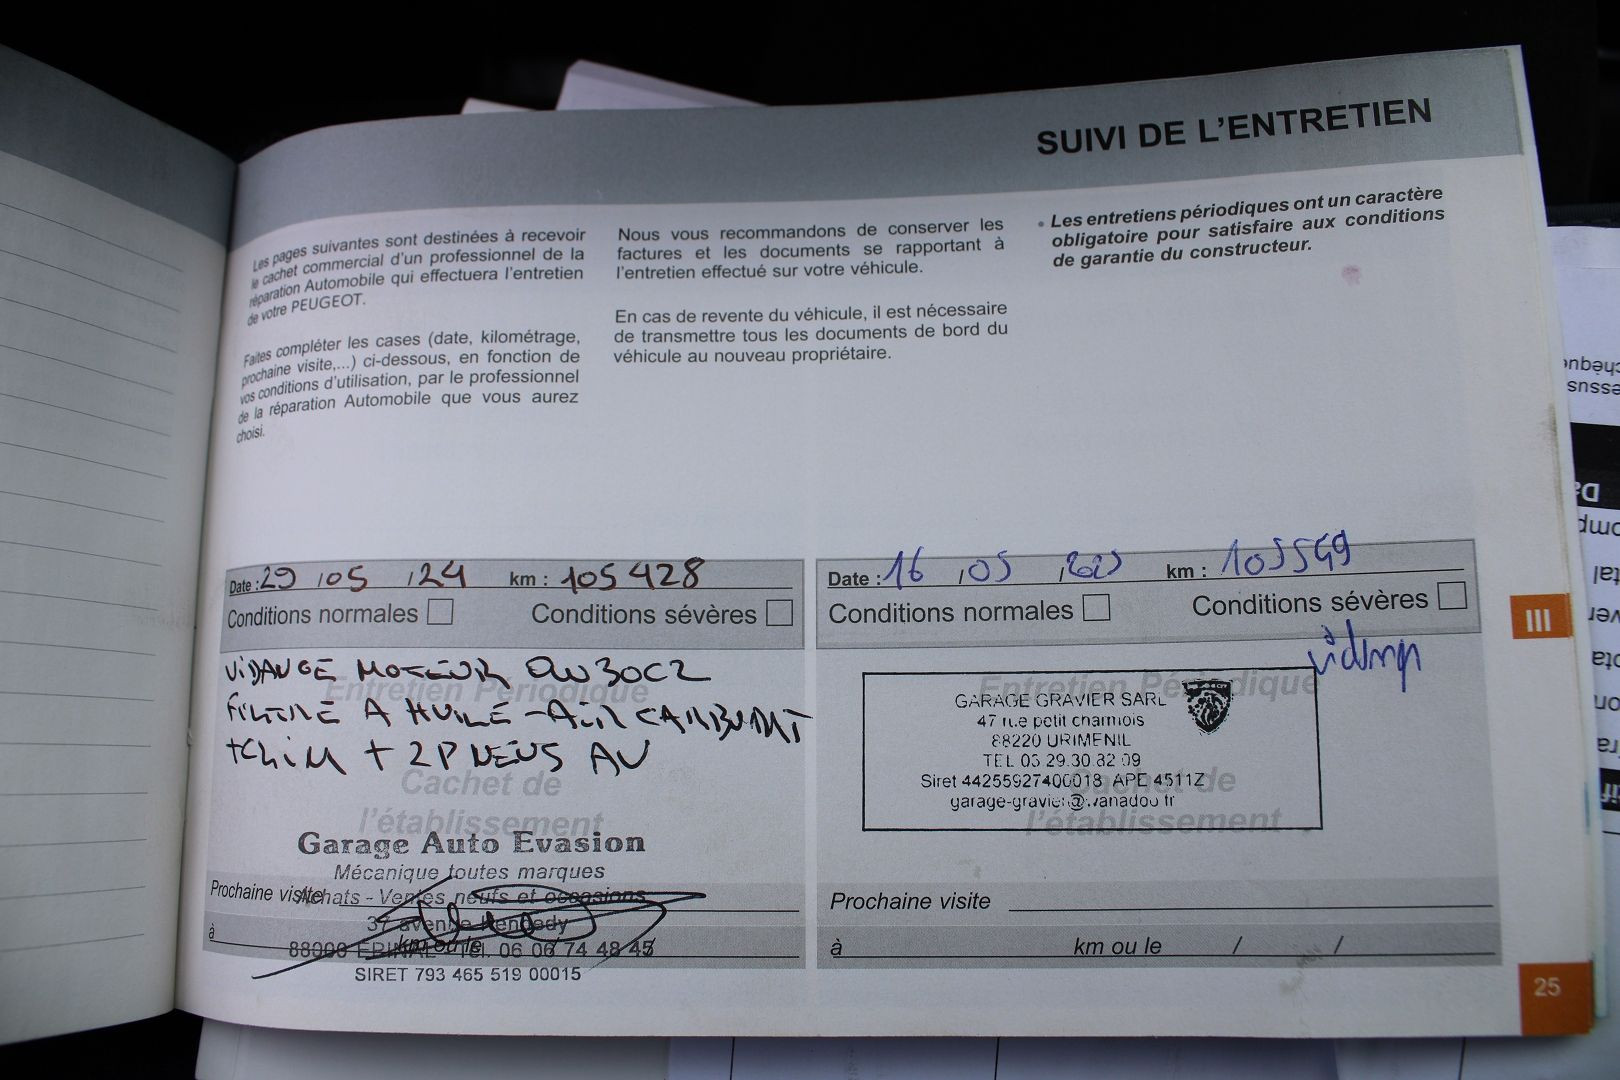 SUIVI DE L'ENTRETIEN
Les pages suivantes sont destinées à recevoir
le cachet commercial d'un professionnel de la
réparation Automobile qui effectuera l'entretien
de votre PEUGEOT.
Faites compléter les cases (date, kilométrage,
prochaine visite,...) ci-dessous, en fonction de
vos conditions d'utilisation, par le professionnel
de la réparation Automobile que vous aurez
choisi.
Nous vous recommandons de conserver les
factures et les documents se rapportant à
l'entretien effectué sur votre véhicule.
En cas de revente du véhicule, il est nécessaire
de transmettre tous les documents de bord du
véhicule au nouveau propriétaire.
• Les entretiens périodiques ont un caractère
obligatoire pour satisfaire aux conditions
de garantie du constructeur.
Date : 29 / 05 / 24 km : 105 428
Conditions normales Conditions sévères
VIDANGE MOTEUR 0W30C2
Entretien Périodique
FILTRE A HUILE - AIR CARBURANT
+ 2 PNEUS AV
Cachet de
l'établissement
Garage Auto Evasion
Mécanique toutes marques
Prochaine visite
Achats - Ventes neufs et occasions
37 avenue Kennedy
à km ou le
88000 EPINAL - Tél. 06 06 74 48 45
SIRET 793 465 519 00015
Date : 16 / 05 / km : 105549
Conditions normales Conditions sévères
vidange
Entretien Périodique
GARAGE GRAVIER SARL
47 rue petit charmois
88220 URIMENIL
TEL 03 29.30.82 09
Siret 44255927400018 APE 4511Z
garage-gravier@wanadoo.fr
Cachet de
l'établissement
Prochaine visite
à km ou le / /
III
25